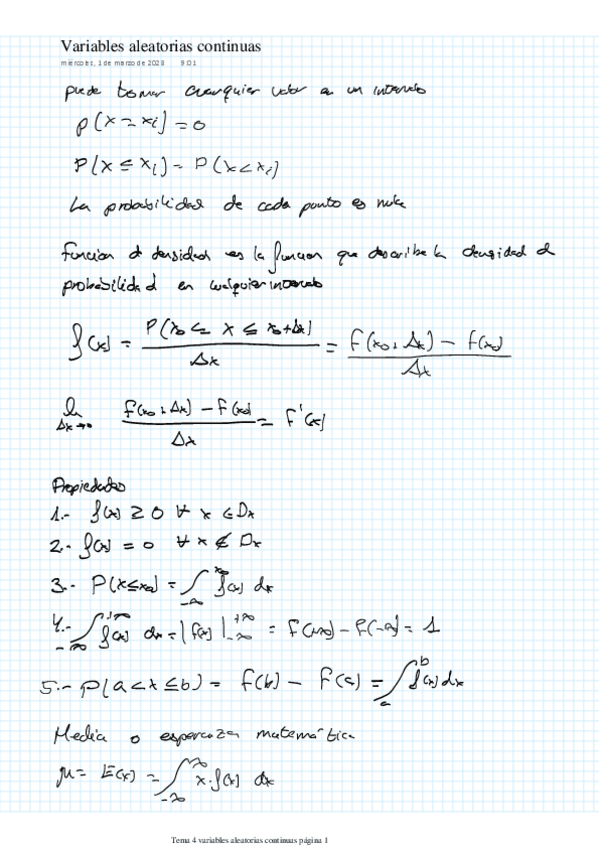 Variables aleatorias continuas
miércoles, 1 de marzo de 2023 9:01
puede tomar cualquier valor en un intervalo
P(X = xi) = 0
P(X ≤ xi) = P(X < xi)
La probabilidad de cada punto es nula
Función de densidad es la función que describe la densidad de
probabilidad en cualquier intervalo
f(x) = P(x₀ ≤ X ≤ x₀+Δx) / Δx = F(x₀+Δx) - F(x₀) / Δx
lim Δx→0 F(x₀+Δx) - F(x₀) / Δx = F'(x)
Propiedades
1.- f(x) ≥ 0 ∀ x ∈ Dx
2.- f(x) = 0 ∀ x ∉ Dx
3.- P(X≤x₀) = ∫_{-∞}^{x₀} f(x) dx
4.- ∫_{-∞}^{+∞} f(x) dx = |F(x)|_{-∞}^{+∞} = F(+∞) - F(-∞) = 1
5.- P(a < X ≤ b) = F(b) - F(a) = ∫_{a}^{b} f(x) dx
Media o esperanza matemática
μ = E(x) = ∫_{-∞}^{∞} x·f(x) dx
Tema 4 variables aleatorias continuas página 1